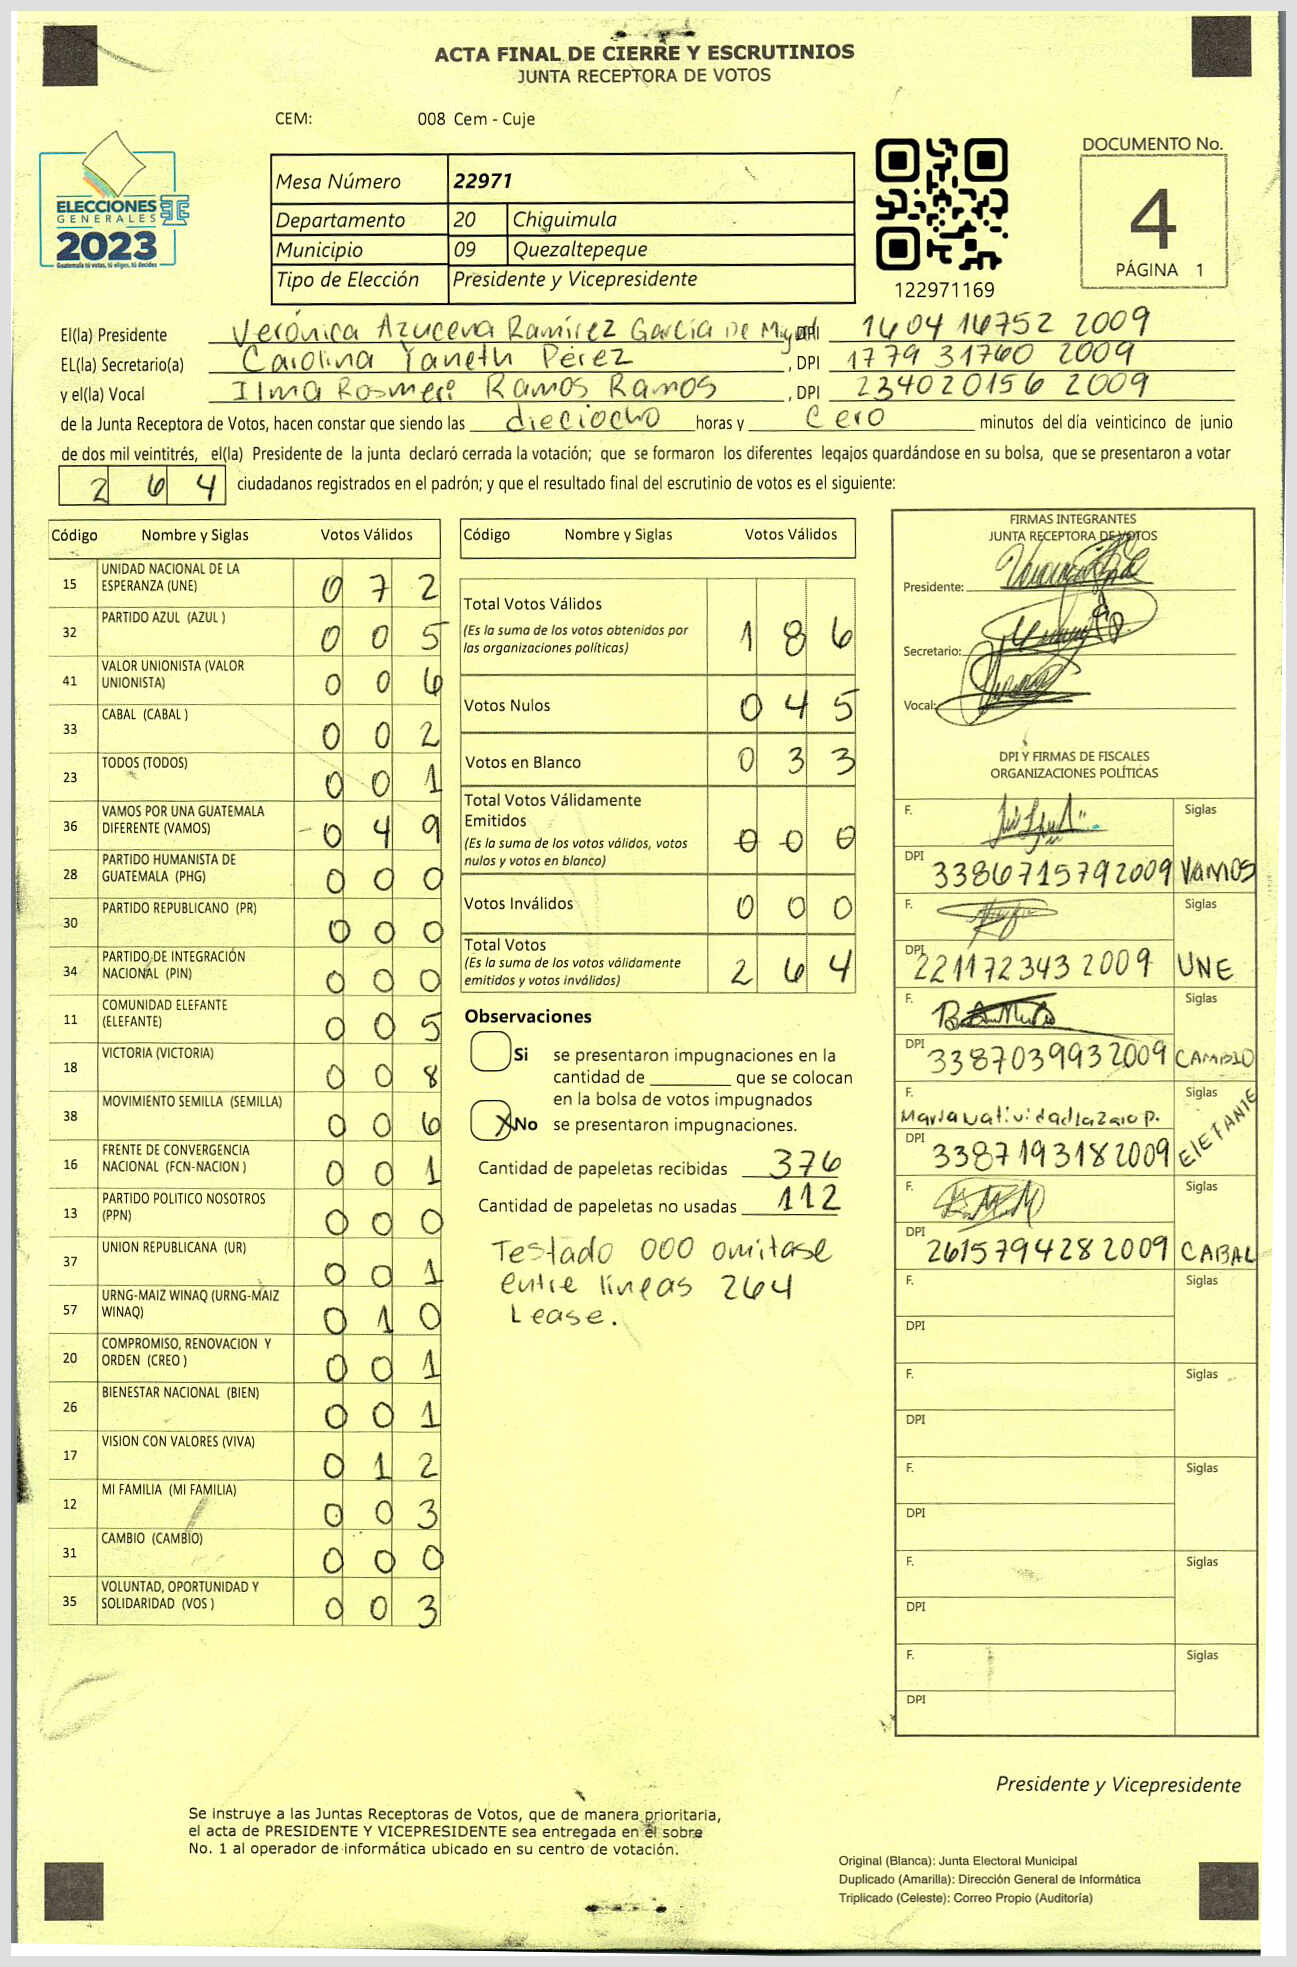 ACTA FINAL DE CIERRE Y ESCRUTINIOS
JUNTA RECEPTORA DE VOTOS
CEM: 008 Cem - Cuje
ELECCIONES
GENERALES
2023
Guatemala tú votas, tú eliges, tú decides
Mesa Número 22971
Departamento 20 Chiquimula
Municipio 09 Quezaltepeque
Tipo de Elección Presidente y Vicepresidente
122971169
DOCUMENTO No.
4
PÁGINA 1
El(la) Presidente Verónica Azucena Ramírez García De DPI 1604 16752 2009
EL(la) Secretario(a) Carolina Yaneth Pérez , DPI 1779 31760 2009
y el(la) Vocal Ilma Rosmeri Ramos Ramos , DPI 234020156 2009
de la Junta Receptora de Votos, hacen constar que siendo las dieciocho horas y Cero minutos del día veinticinco de junio
de dos mil veintitrés, el(la) Presidente de la junta declaró cerrada la votación; que se formaron los diferentes legajos guardándose en su bolsa, que se presentaron a votar
264 ciudadanos registrados en el padrón; y que el resultado final del escrutinio de votos es el siguiente:
Código Nombre y Siglas Votos Válidos
15 UNIDAD NACIONAL DE LA
ESPERANZA (UNE) 0 7 2
32 PARTIDO AZUL (AZUL ) 0 0 5
41 VALOR UNIONISTA (VALOR
UNIONISTA) 0 0 6
33 CABAL (CABAL ) 0 0 2
23 TODOS (TODOS) 0 0 1
36 VAMOS POR UNA GUATEMALA
DIFERENTE (VAMOS) 0 4 9
28 PARTIDO HUMANISTA DE
GUATEMALA (PHG) 0 0 0
30 PARTIDO REPUBLICANO (PR) 0 0 0
34 PARTIDO DE INTEGRACIÓN
NACIONAL (PIN) 0 0 0
11 COMUNIDAD ELEFANTE
(ELEFANTE) 0 0 5
18 VICTORIA (VICTORIA) 0 0 8
38 MOVIMIENTO SEMILLA (SEMILLA) 0 0 6
16 FRENTE DE CONVERGENCIA
NACIONAL (FCN-NACION ) 0 0 1
13 PARTIDO POLITICO NOSOTROS
(PPN) 0 0 0
37 UNION REPUBLICANA (UR) 0 0 1
57 URNG-MAIZ WINAQ (URNG-MAIZ
WINAQ) 0 1 0
20 COMPROMISO, RENOVACION Y
ORDEN (CREO ) 0 0 1
26 BIENESTAR NACIONAL (BIEN) 0 0 1
17 VISION CON VALORES (VIVA) 0 1 2
12 MI FAMILIA (MI FAMILIA) 0 0 3
31 CAMBIO (CAMBIO) 0 0 0
35 VOLUNTAD, OPORTUNIDAD Y
SOLIDARIDAD (VOS ) 0 0 3
Código Nombre y Siglas Votos Válidos
Total Votos Válidos 1 8 6
(Es la suma de los votos obtenidos por
las organizaciones políticas)
Votos Nulos 0 4 5
Votos en Blanco 0 3 3
Total Votos Válidamente
Emitidos 0 0 0
(Es la suma de los votos válidos, votos
nulos y votos en blanco)
Votos Inválidos 0 0 0
Total Votos 2 6 4
(Es la suma de los votos válidamente
emitidos y votos inválidos)
Observaciones
Si se presentaron impugnaciones en la
cantidad de ________ que se colocan
en la bolsa de votos impugnados
X No se presentaron impugnaciones.
Cantidad de papeletas recibidas 376
Cantidad de papeletas no usadas 112
Testado 000 omitase
entre líneas 264
Lease.
FIRMAS INTEGRANTES
JUNTA RECEPTORA DE VOTOS
Presidente:
Secretario:
Vocal:
DPI Y FIRMAS DE FISCALES
ORGANIZACIONES POLÍTICAS
F. Siglas
DPI 3386715792009 VAMOS
F. Siglas
DPI 221172343 2009 UNE
F. Siglas
DPI 3387039932009 CAMBIO
F. Siglas
DPI 3387193182009 ElEfANTE
F. Siglas
DPI 2615794282009 CABAL
F. Siglas
DPI
F. Siglas
DPI
F. Siglas
DPI
F. Siglas
DPI
F. Siglas
DPI
Presidente y Vicepresidente
Se instruye a las Juntas Receptoras de Votos, que de manera prioritaria,
el acta de PRESIDENTE Y VICEPRESIDENTE sea entregada en el sobre
No. 1 al operador de informática ubicado en su centro de votación.
Original (Blanca): Junta Electoral Municipal
Duplicado (Amarilla): Dirección General de Informática
Triplicado (Celeste): Correo Propio (Auditoría)